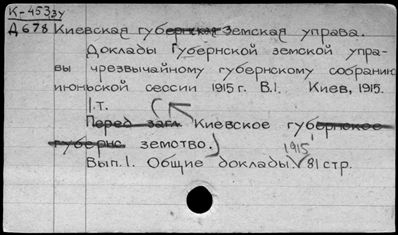 К-453зу
Д678 Киевская губернская Земская управа.
Доклады Губернской земской упра-
вы чрезвычайному губернскому собранию
июньской сессии 1915 г. В.1. Киев, 1915.
1 т.
Перед загл. Киевское губернское
губернс земство.)
1915,
Вып.1. Общие доклады. 81 стр.